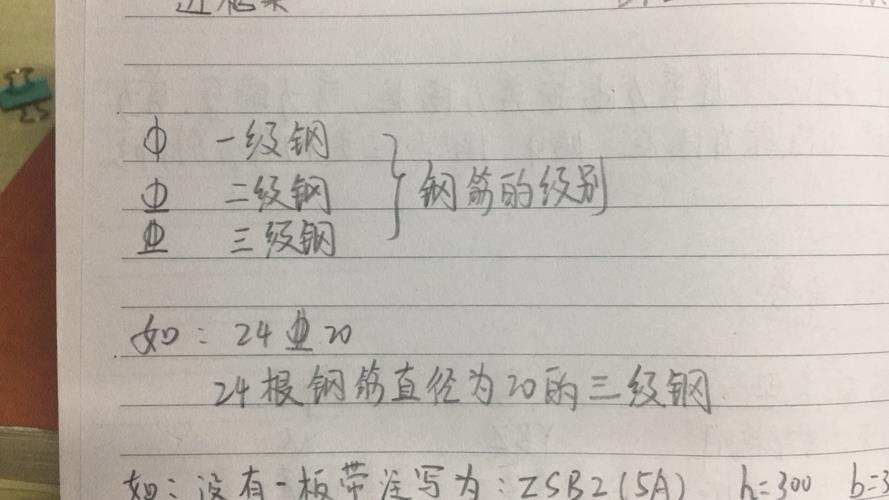 Φ 一级钢
Φ 二级钢
Φ 三级钢
钢筋的级别
如：24Φ20
24根钢筋直径为20的三级钢
如：没有一板带注写为：ZSB2(5A) h=300 b=3